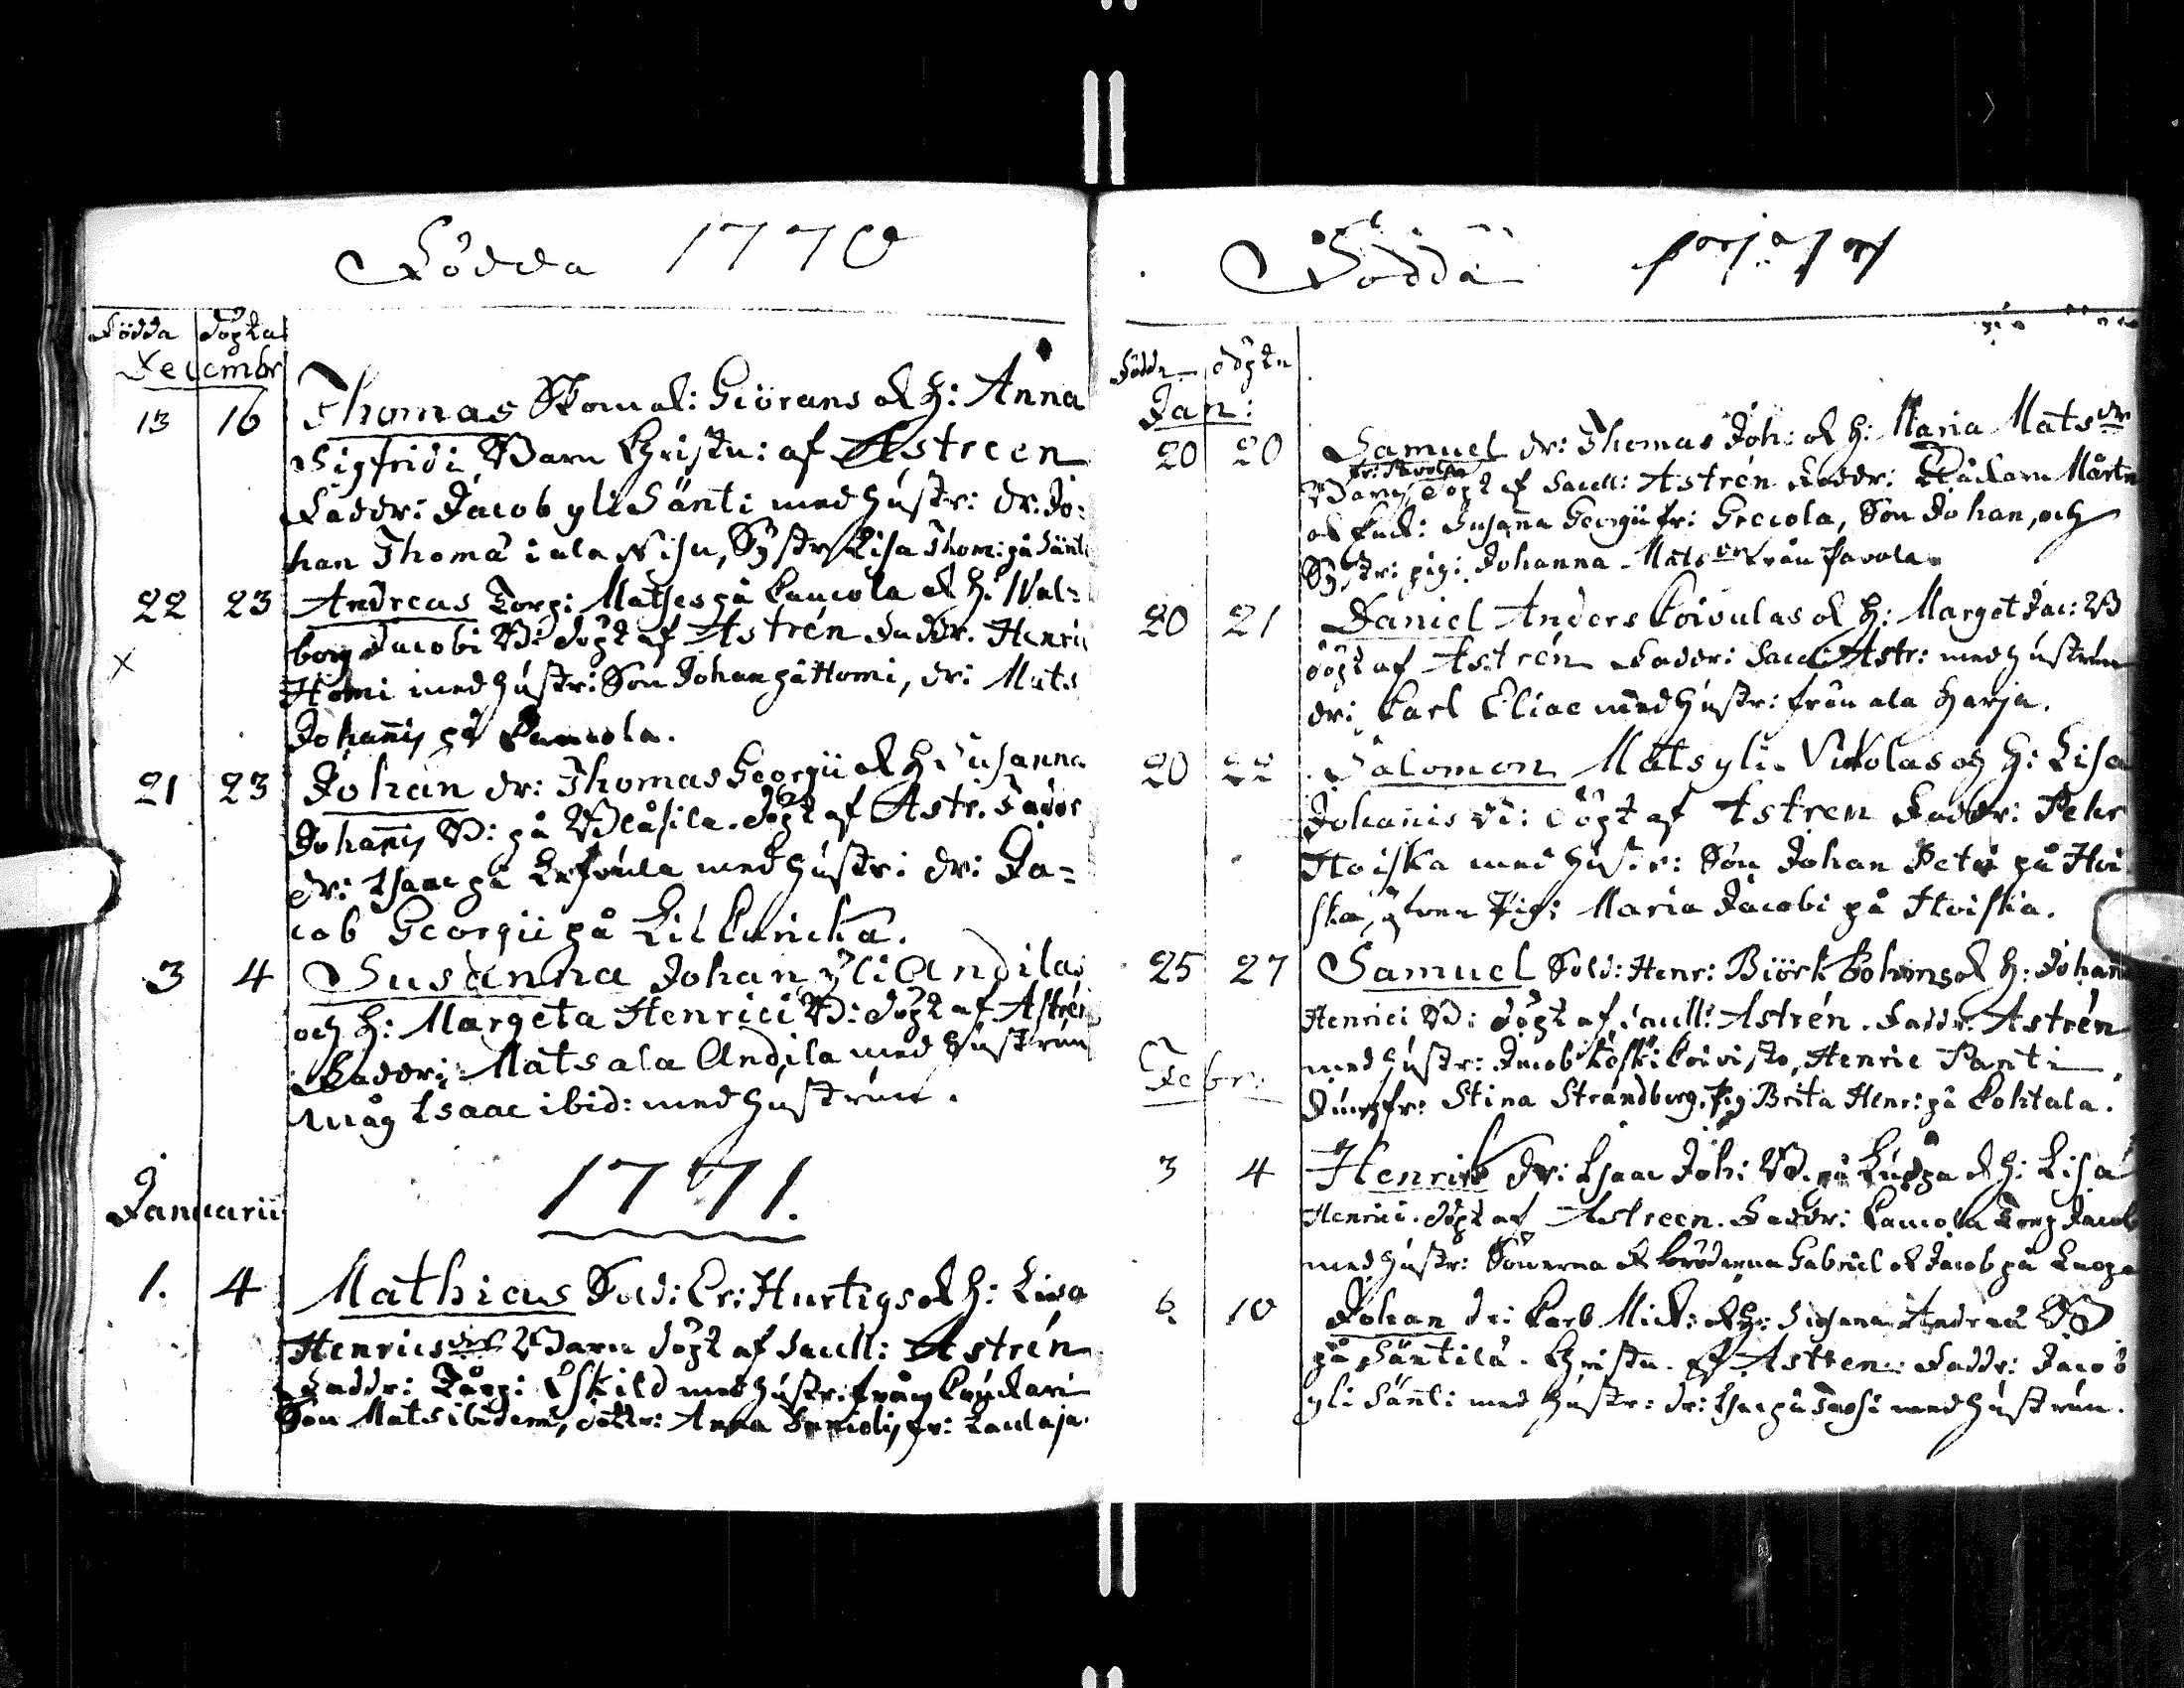 Födda 1770
Födda Döpta
Decembr
13 16 Thomas Skomak: Giörans ok H: Anna
Sigfridi Barn Christn: af Astreen
Faddr: Jacob yli Sänti med hustr: dr: Jo:
han Thomæ i ala Nisu, Systr Lisa Thom: på Sänti
22 23 Andreas Torp: Matses på Caucola ok H: Wal=
borg Jacobi B: döpt af Astrén Faddr. Henric
x Homi med hustr: Son Johan på Homi, dr: Mats
Johannis på Caucola.
21 23 Johan dr: Thomas Georgii ok H: Susanna
Johannis B: på Blåfila. döpt af Astr. Faddr
dr: Isaac på med hustr: dr: Ja=
cob Georgii på Lill
3 4 Susanna Johan yli Andilas
och H: Margeta Henrici B: döpt af Astrén
Faddr: Mats ala Andila med hustrun
måg Isaac ibid: med hustrun.
1771.
Januarii
1. 4 Mathias Sold: Er: Hurtigs ok H: Lisa
Henricsdr Barn döpt af Sacell: Astrén
Faddr: Torp: Eskild med hustr: från Couckari
Son Mats ibidem, dottr: Anna fr: Laulaja.
Födda 1771
Födda döpta
Jan:
20 20 Samuel dr: Thomas Joh: ok H: Maria Matsdr
fr: Pavola
Barn, döpt af Sacell: Astrén Faddr: Mårten
ok Susanna Georgii fr: Grecola, Son Johan, och
Systr: pig: Johanna Matsdr från Pavola.
20 21 Daniel Anders Coivulas ok H: Marget Jac: B
döpt af Astrén Faddr: Sacell: Astr: med hustrun
dr: Carl Eliae med hustr: från ala Harja.
20 22 Salomon Mats yli Vickolas och H: Lisa
Johannis B: döpt af Astren Faddr: Pehr
Hoiska med hustr: Son Johan Petri på Hoi
ska, Pig: Maria Jacobi på Hoiska.
25 27 Samuel Sold: Henr: Biörkbohms ok H: Johanna
Henrici B: döpt af Sacell: Astrén. Faddr: Astrén
med hustr: Jacob Koski Coivisto, Henric Panti
Febr:
Jungfr: Stina Strandberg, Pig Brita Henr: på Kohtala.
3 4 Henrik dr: Isaac Joh: B. på Luopa ok H: Lisa
Henrici. döpt af Astreen. Faddr: Caucola Torp Jacob
med hustr: Sönerna ok bröderna Gabriel ok Jacob på Luopa
6 10 Johan dr: Carl Mick: ok H: Susanna Andreæ B
på Säntilä. Christn. af Astren: Faddr: Jacob
yli Sänti med hustr: dr: Isac på med hustrun.